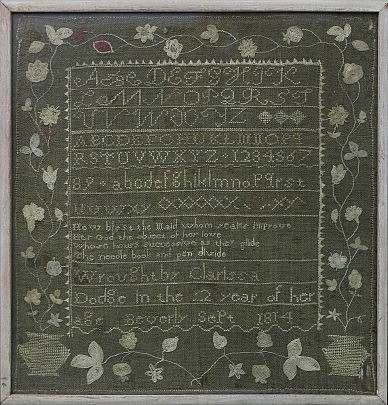 A B C D E F G H I K
L M N O P Q R S T
U V W X Y Z
ABCDEFGHIKLMNOPQ
RSTUVWXYZ · 1234567
89 · abcdefghiklmnopqrst
uvwxyz
How blest the Maid whom years improve
Her God the object of her love
Whose hours successive as they glide
The needle book and pen divide
Wrought by Clarissa
Dodge in the 12 year of her
age Beverly Sept 1814